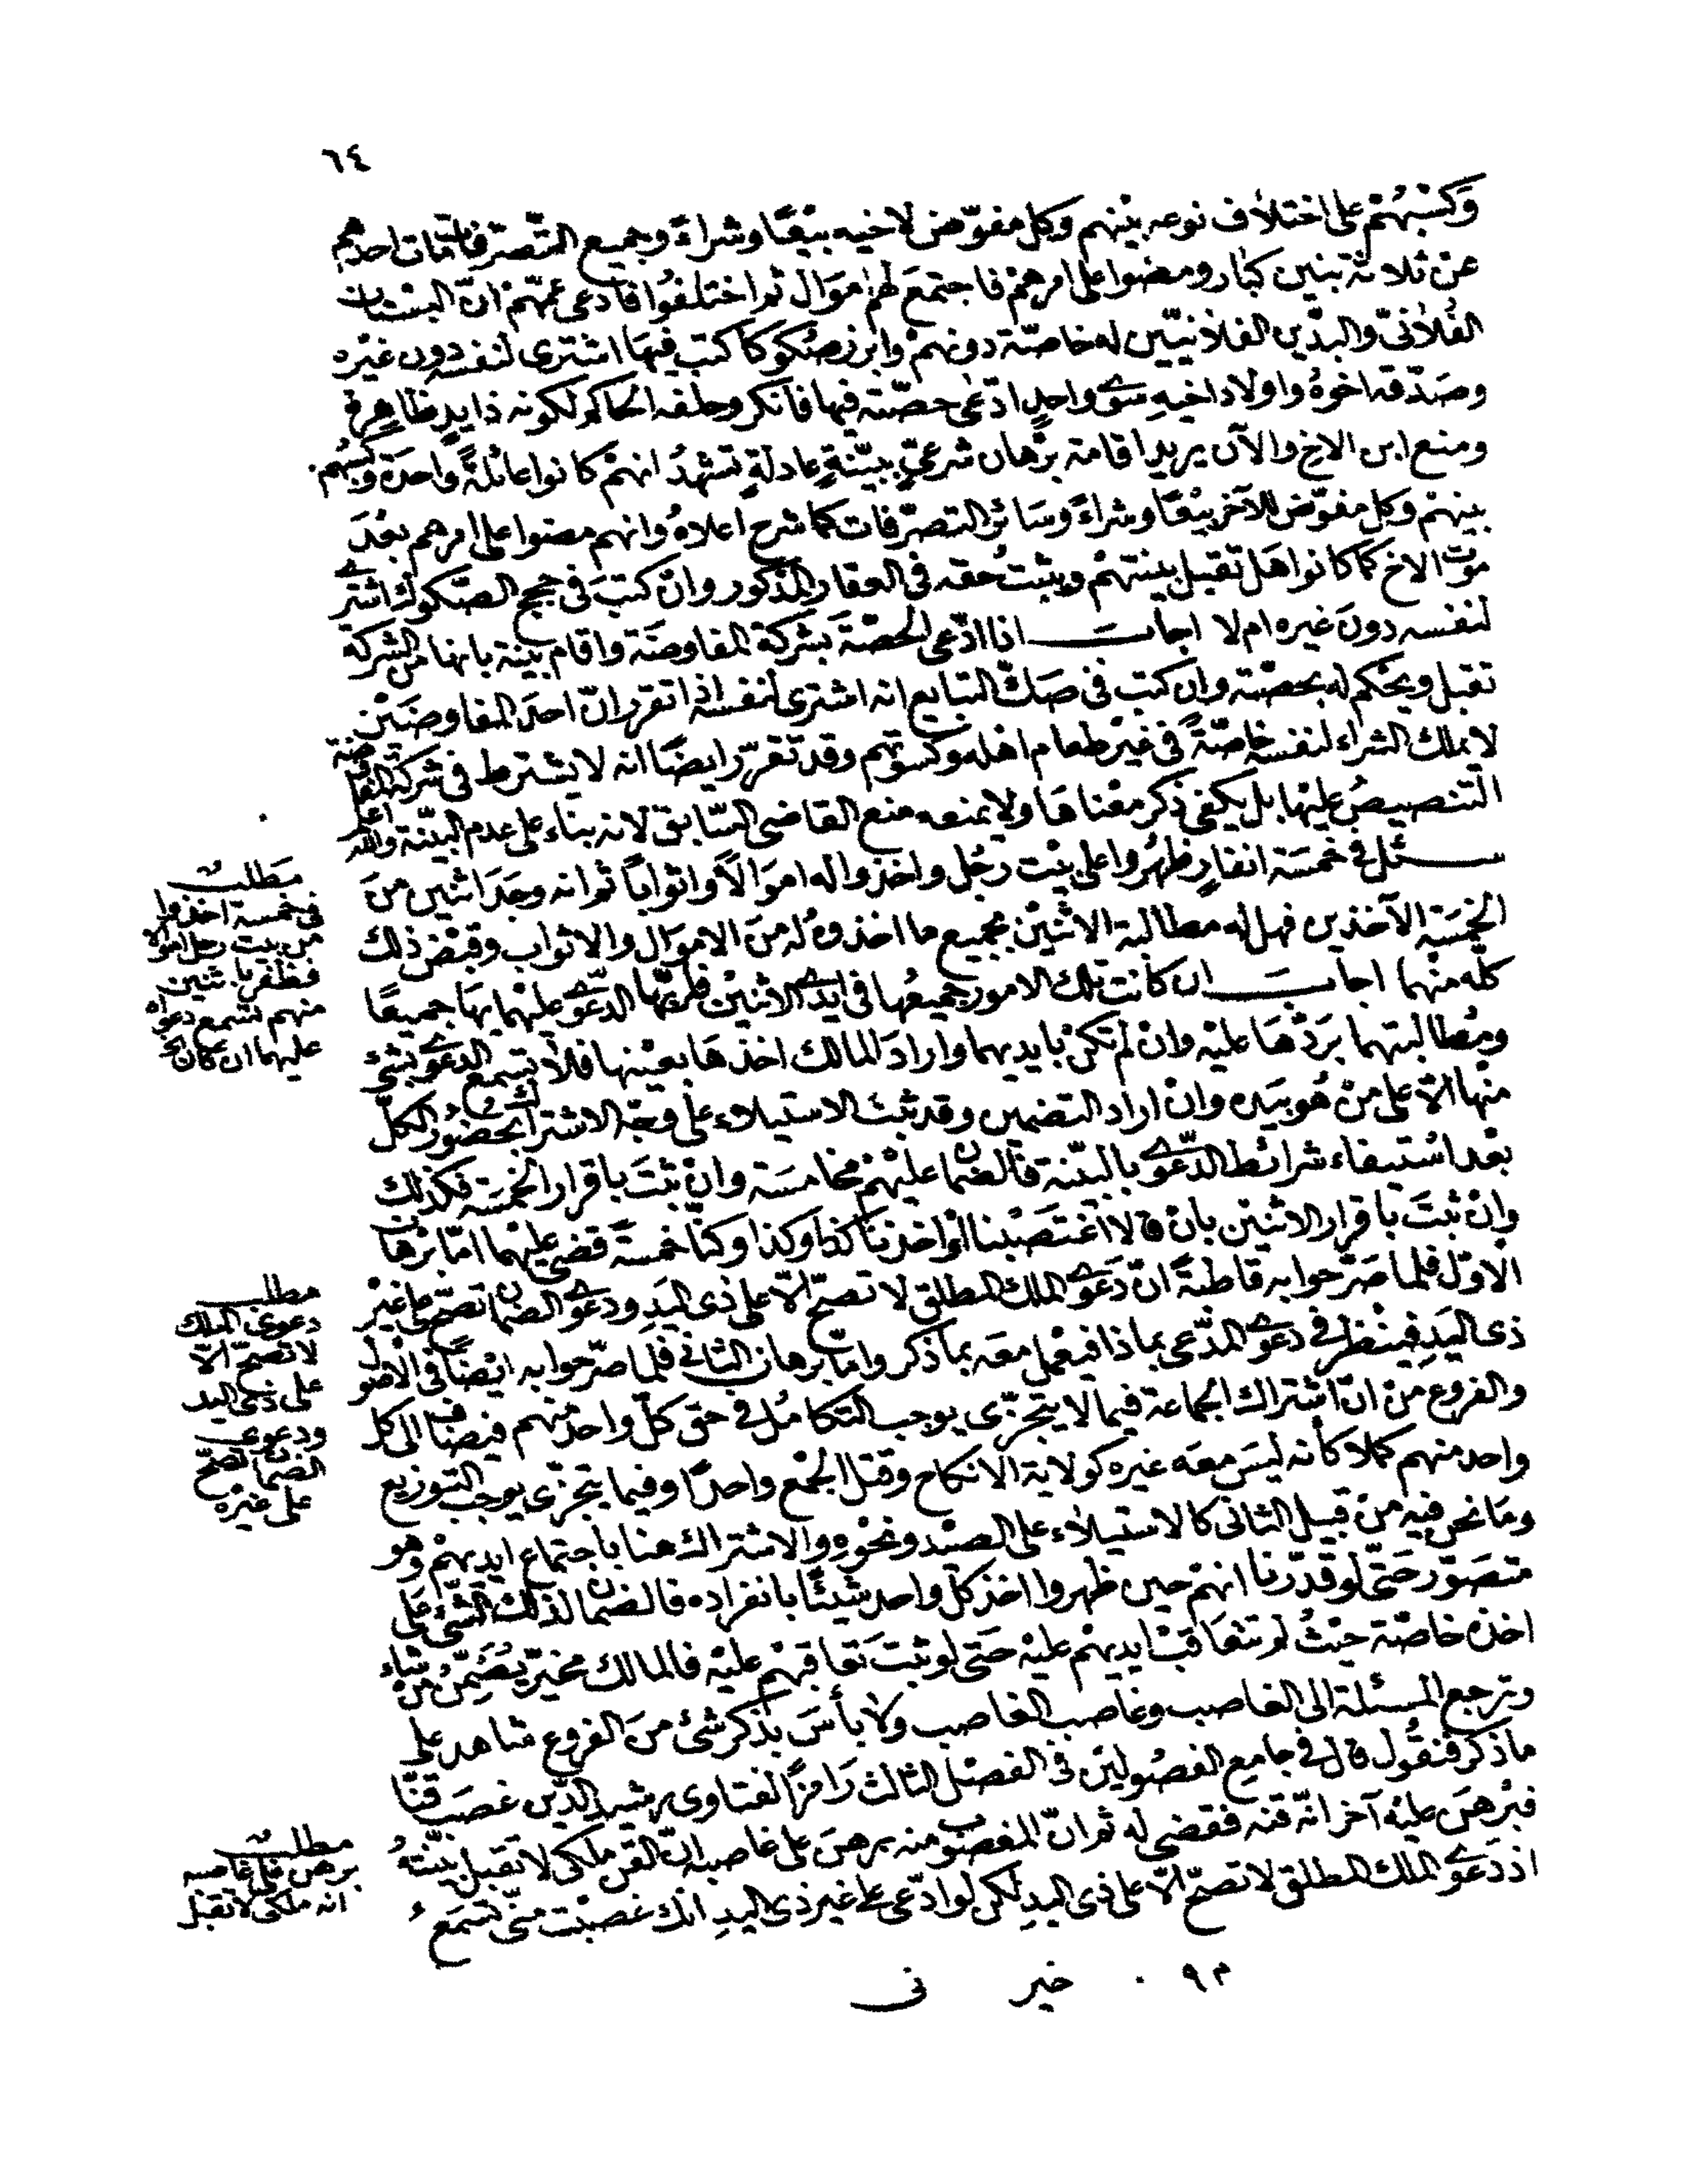 ٦٤
وكسبهم على اختلاف نوعه بينهم وكل مفوّض لاخيه بيعًا وشراءً وجميع التصرّفات مات احدهم
عن ثلاثة بنين كبار ومضوا على امرهم فاجتمع لهم اموال ثم اختلفوا فادعى عمّهم انّ البستان
الفلانىّ والبدّين الفلانيّين له خاصّة دونهم وابرز صكوكا كتب فيها اشترى لنفسه دون غيره
وصدّقه اخوه واولاد اخيه سوى واحدٍ ادّعى حصّته فيها فانكر وحلفه الحاكم لكونه ذا يدٍ ظاهرة
ومنع ابن الاخ والآن يريد اقامة برهان شرعىّ ببيّنةٍ عادلةٍ تشهد انهم كانوا عائلةً واحدة وكسبهم
بينهم وكل مفوّض للآخر بيعًا وشراءً وسائر التصرّفات كما شرح اعلاه وانهم مضوا على امرهم بعد
موت الاخ كما كانوا هل تقبل بينتهم ويثبت حقه فى العقار المذكور وان كتب فى حجج الصكوك اشترى
لنفسه دون غيره ام لا اجاب اذا ادّعى الحصّة بشركة المفاوضة واقام بينة بانها من الشركة
تقبل ويحكم له بحصّته وان كتب فى صكّ التبايع انه اشترى لنفسه اذا تقرر انّ احد المفاوضَين
لا يملك الشراء لنفسه خاصّةً فى غير طعام اهله وكسوتهم وقد تقرّر ايضًا انه لا يشترط فى شركة المفاوضة
التنصيص عليها بل يكفى ذكر معناها ولا يمنعه منع القاضى السّابق لانه بناء على عدم البيّنة والله اعلم
سئل فى خمسة انفارٍ ظهروا على بيت رجُل واخذوا له اموالاً واثواباً ثم انه وجد اثنين من
الخمسة الآخذين فهل له مطالبة الاثنين بجميع ما اخذوه له من الاموال والاثواب وقبض ذلك
كلّه منهما اجاب ان كانت تلك الامور جميعها فى ايدى الاثنين فله الدّعوى عليهما بها جميعًا
ومطالبتهما بردّها عليه وان لم تكن بايديهما واراد المالك اخذها بعينها فلا تسمع الدعوى بشئ
منها الّا على من هو بيده وان اراد التضمين وقد ثبت الاستيلاء على وجه الاشتراك بحضور الكلّ
بعد استيفاء شرائط الدّعوى بالبيّنة فالضمان عليهم مخامسة وان ثبت باقرار الخمسة فكذلك
وان ثبت باقرار الاثنين بان قالا اغتصبنا او اخذنا كذا وكذا وكنّا خمسة قضى عليهما امّا برهان
الاوّل فلما صرّحوا به قاطبةً انّ دعوى الملك المطلق لا تصحّ الّا على ذى اليد ودعوى الضمان تصحّ على غير
ذى اليد فينظر فى دعوى المدّعى بماذا فيعمل معه بما ذكر وامّا برهان الثانى فلما صرّحوا به ايضًا فى الاصول
والفروع من انّ اشتراك الجماعة فيما لا يتجزّى يوجب التكامل فى حق كلّ واحد منهم فيضاف الى كل
واحد منهم كملا كأنه ليس معه غيره كولاية الانكاح وقتل الجمع واحدًا وفيما يتجزّى يوجب التوزيع
وما نحن فيه من قبيل الثانى كالاستيلاء على الصيد ونحوه والاشتراك هنا باجتماع ايديهم وهو
متصوّر حتّى لو قدّرنا انهم حين ظهروا اخذ كلّ واحد شيئًا بانفراده فالضمان لذلك الشّئ على
اخذه خاصّة حيث لم تتعاقب ايديهم عليه حتى لو ثبت تعاقبهم عليه فالمالك مخيّر يضمّن من شاء
وترجع المسئلة الى الغاصب وغاصب الغاصب ولا بأس بذكر شئ من الفروع شاهد على
ما ذكر فنقول قال فى جامع الفصولين فى الفصل الثالث رامزًا لفتاوى رشيد الدّين غصب قنًّا
فبرهن عليه آخر انّه قنه فقضى له ثم انّ المغصوب منه برهن على غاصبه انّ القن ملكى لا تقبل بيّنته
اذ دعوى الملك المطلق لا تصحّ الّا على ذى اليد لكن لو ادّعى على غير ذى اليد انك غصبت منّى تسمع
مطلب
فى خمسة اخذوا
من بيت رجل اموالا
فظفر باثنين
منهم تسمع دعواه
عليهما ان كان الخ
مطلب
دعوى الملك
لا تصحّ الّا
على ذى اليد
ودعوى
الضمان تصحّ
على غيره
مطلب
برهن على غاصبه
انه ملكى لا تقبل
م ٩ . خير نى